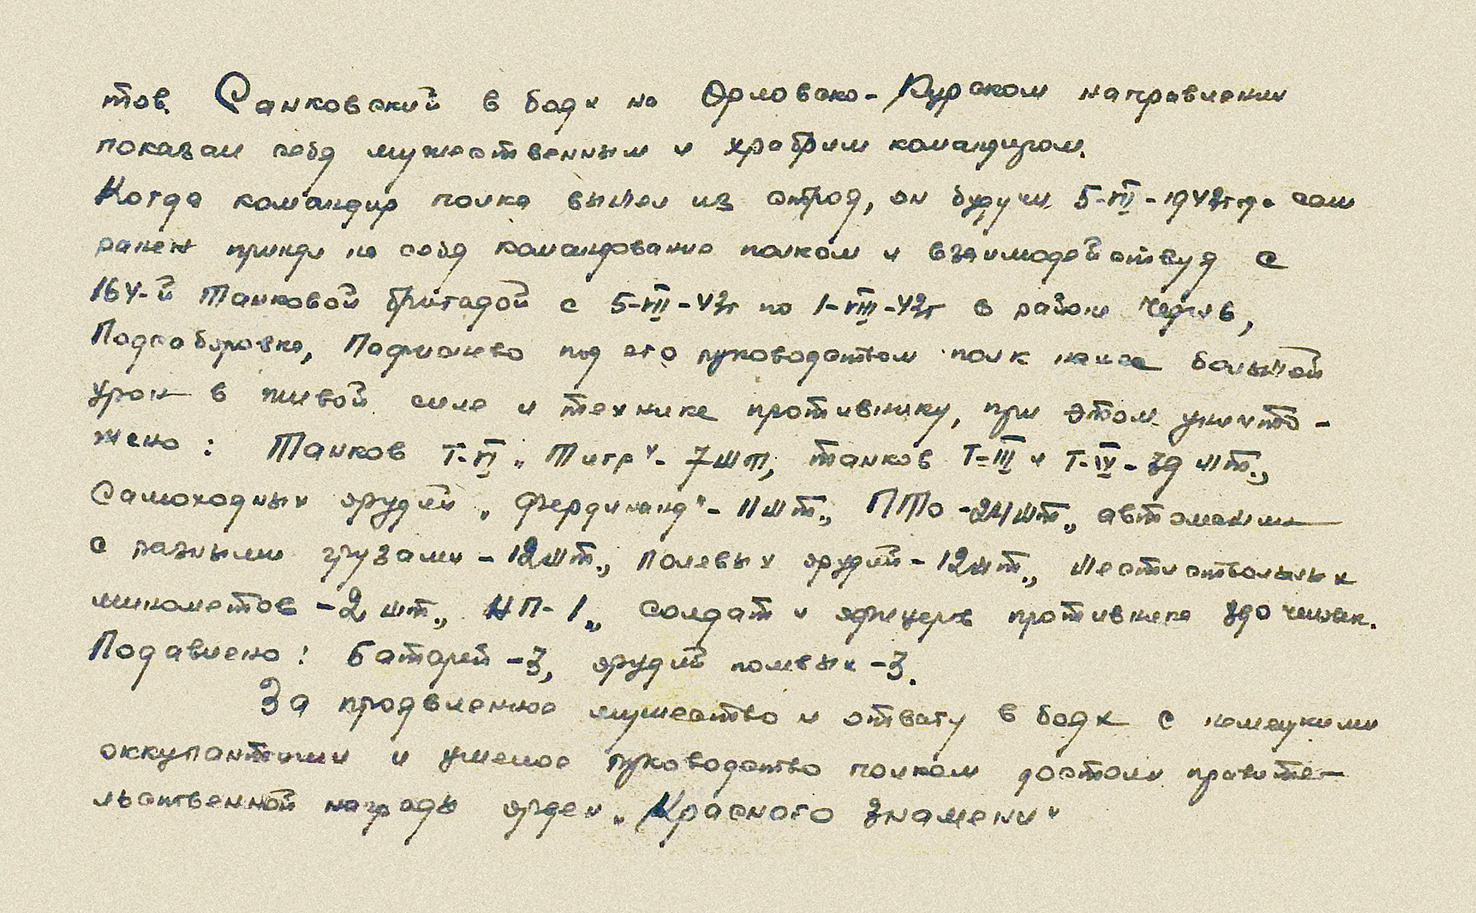 тов. Санковский в боях на Орловско-Курском направлении
показал себя мужественным и храбрым командиром.
Когда командир полка вышел из строя, он будучи 5-VII-1943 года сам
ранен принял на себя командование полком и взаимодействуя с
164-й танковой бригадой с 5-VII-43г по 1-VIII-43г в районе
Подсоборовка, под его руководством полк нанес большой
урон в живой силе и технике противнику, при этом уничто-
жено: Танков Т-VI „Тигр"- 7шт, танков Т-III и Т-IV-39 шт.,
Самоходных орудий „Фердинанд"- 11шт., ПТО -24шт., автомашин
с разными грузами - 12шт., полевых орудий - 12шт., шестиствольных
минометов -2 шт., НП-1, солдат и офицеров противника человек.
Подавлено: батарей -3, орудий полевых -3.
За проявленное мужество и отвагу в боях с немецкими
оккупантами и умелое руководство полком достоин правите-
льственной награды орден „Красного Знамени"